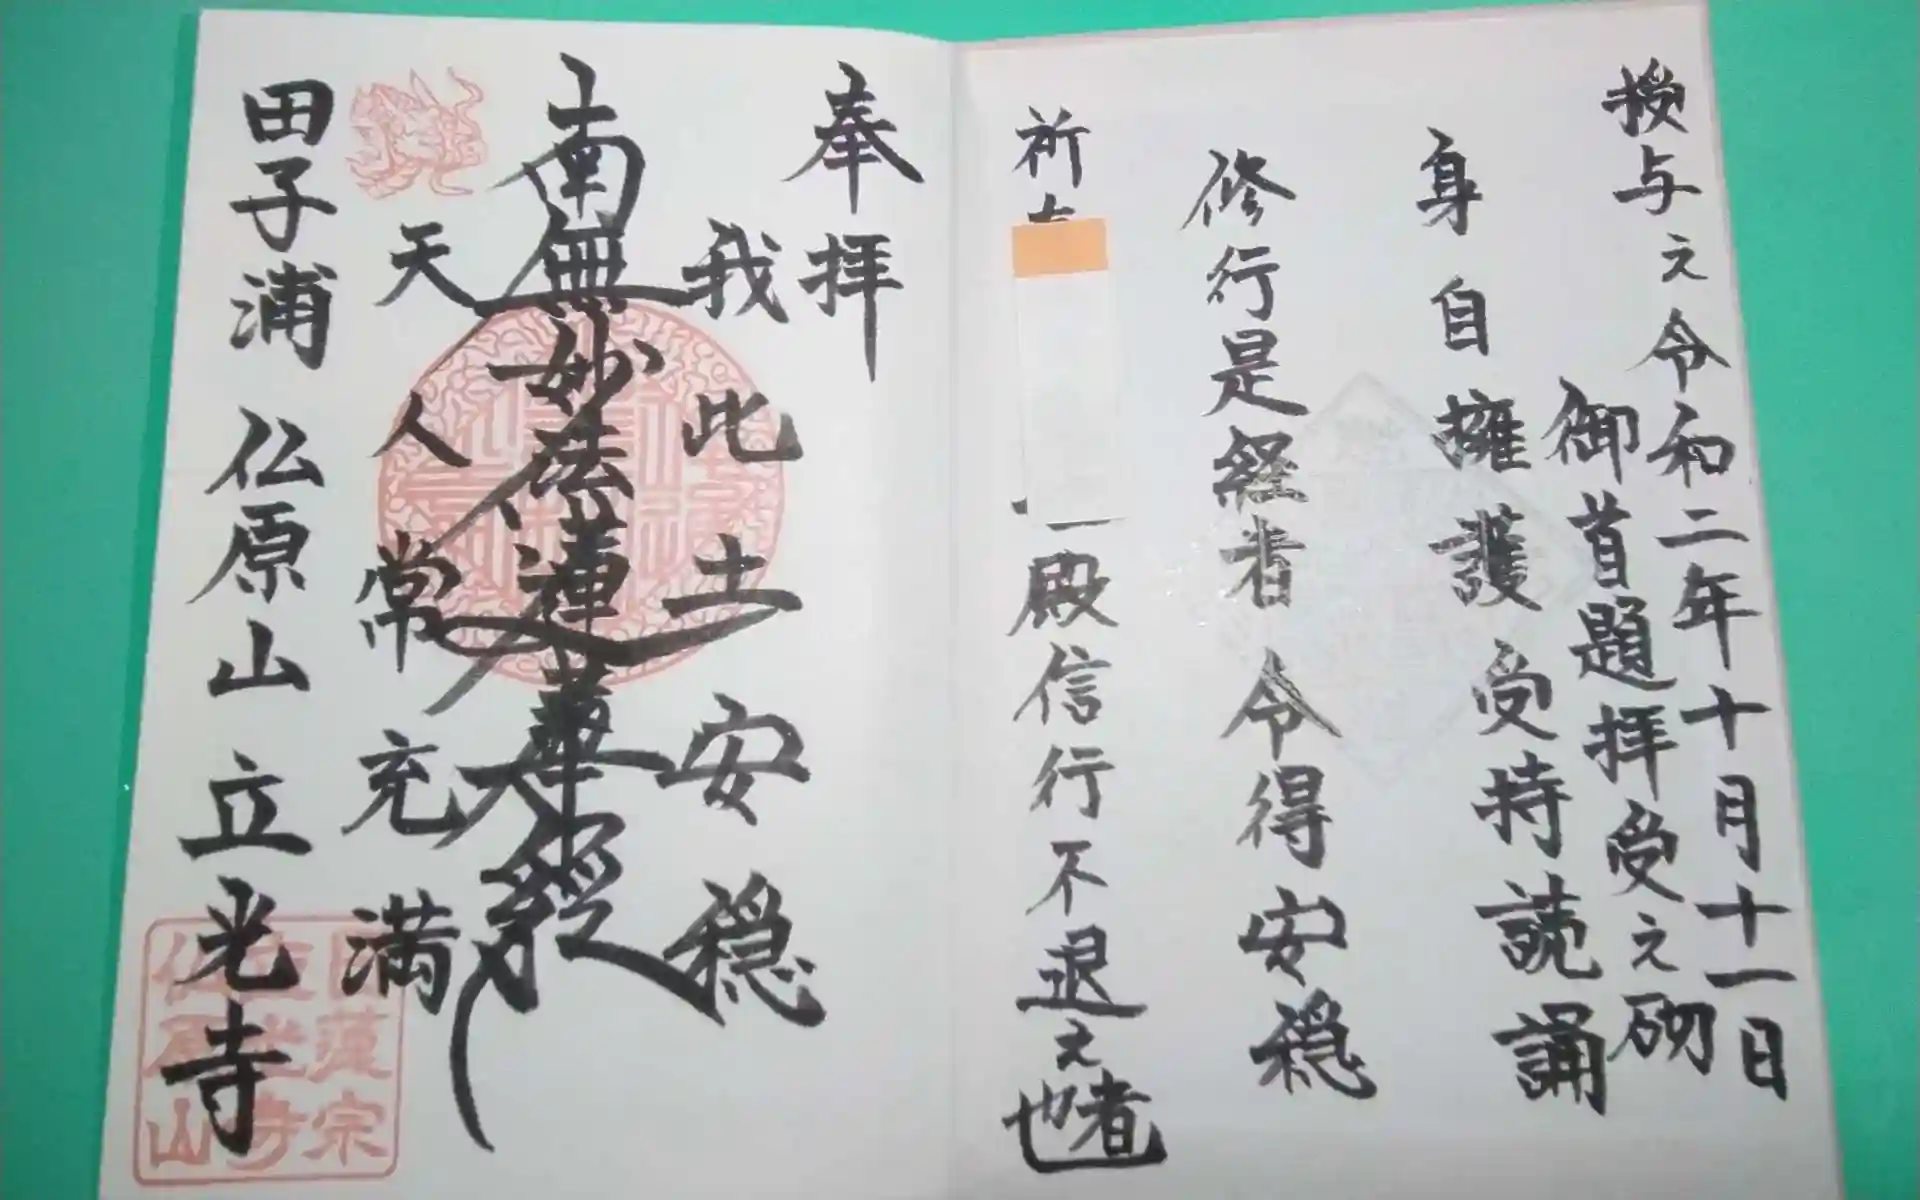 授与之令和二年十月十一日
御首題拝受之砌
身自擁護受持読誦
修行是経者令得安穏
祈
殿信行不退之也者
奉拝
我此土安穏
南無妙法蓮華経
天人常充満
田子浦 仏原山 立光寺
日蓮宗
立光寺
仏原山